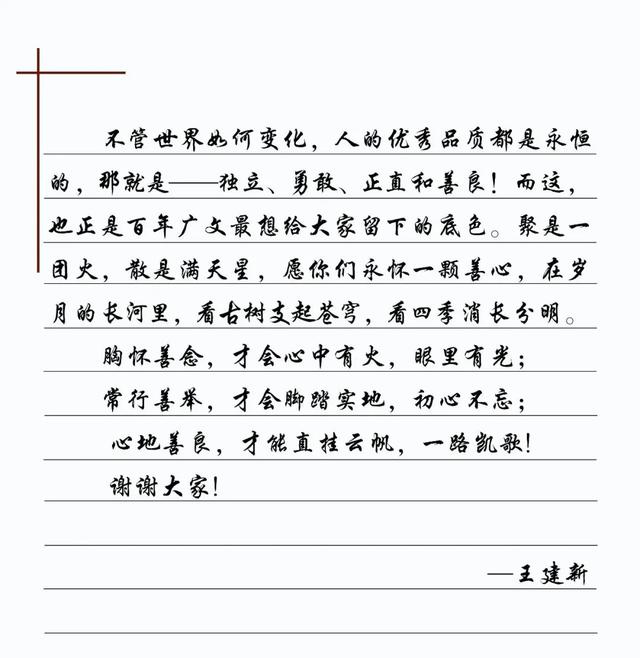 不管世界如何变化，人的优秀品质都是永恒
的，那就是——独立、勇敢、正直和善良！而这，
也正是百年广文最想给大家留下的底色。聚是一
团火，散是满天星，愿你们永怀一颗善心，在岁
月的长河里，看古树支起苍穹，看四季消长分明。
胸怀善念，才会心中有火，眼里有光；
常行善举，才会脚踏实地，初心不忘；
心地善良，才能直挂云帆，一路凯歌！
谢谢大家！
—王建新